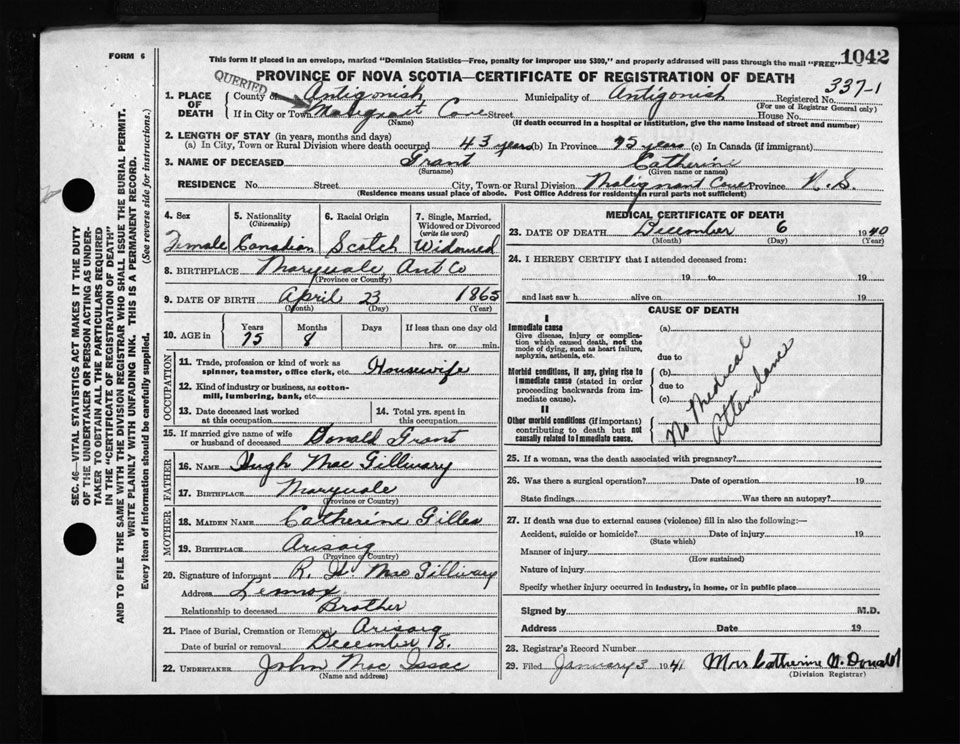 FORM 6
This form if placed in an envelope, marked "Dominion Statistics—Free, penalty for improper use $300," and properly addressed will pass through the mail "FREE"
1042
QUERIED
PROVINCE OF NOVA SCOTIA—CERTIFICATE OF REGISTRATION OF DEATH
337-1
1. PLACE OF DEATH
County of Antigonish Municipality of Antigonish Registered No.
(For use of Registrar General only)
If in City or Town Malignant Cove Street House No.
(Name) (If death occurred in a hospital or institution, give the name instead of street and number)
2. LENGTH OF STAY (in years, months and days)
(a) In City, Town or Rural Division where death occurred 43 years (b) In Province 75 years (c) In Canada (if immigrant)
3. NAME OF DECEASED Grant Catherine
(Surname) (Given name or names)
RESIDENCE No. Street City, Town or Rural Division Malignant Cove Province N. S.
(Residence means usual place of abode. Post Office Address for residents in rural parts not sufficient)
4. Sex 5. Nationality (Citizenship) 6. Racial Origin 7. Single, Married, Widowed or Divorced (write the word)
Female Canadian Scotch Widowed
8. BIRTHPLACE Maryvale, Ant Co
(Province or Country)
9. DATE OF BIRTH April 23 1865
(Month) (Day) (Year)
10. AGE in Years Months Days If less than one day old
75 8 hrs. or min.
OCCUPATION
11. Trade, profession or kind of work as spinner, teamster, office clerk, etc. Housewife
12. Kind of industry or business, as cotton-mill, lumbering, bank, etc.
13. Date deceased last worked at this occupation
14. Total yrs. spent in this occupation
15. If married give name of wife or husband of deceased Donald Grant
FATHER
16. NAME Hugh Mac Gillivary
17. BIRTHPLACE Maryvale
(Province or Country)
MOTHER
18. MAIDEN NAME Catherine Gilles
19. BIRTHPLACE Arisaig
(Province or Country)
20. Signature of informant R. H. Mac Gillivary
Address Lennox
Relationship to deceased Brother
21. Place of Burial, Cremation or Removal Arisaig
Date of burial or removal December 8.
22. UNDERTAKER John Mac Issac
(Name and address)
MEDICAL CERTIFICATE OF DEATH
23. DATE OF DEATH December 6 1940
(Month) (Day) (Year)
24. I HEREBY CERTIFY that I attended deceased from:
19 to 19
and last saw h alive on 19
CAUSE OF DEATH
I
Immediate cause (a)
Give disease, injury or complication which caused death, not the mode of dying, such as heart failure, asphyxia, asthenia, etc.
due to
Morbid conditions, if any, giving rise to immediate cause (stated in order proceeding backwards from immediate cause).
(b)
due to
(c)
II
Other morbid conditions (if important) contributing to death but not causally related to immediate cause.
No Medical Attendance
25. If a woman, was the death associated with pregnancy?
26. Was there a surgical operation? Date of operation 19
State findings Was there an autopsy?
27. If death was due to external causes (violence) fill in also the following:—
Accident, suicide or homicide? Date of injury 19
(State which)
Manner of injury
(How sustained)
Nature of injury
Specify whether injury occurred in industry, in home, or in public place
Signed by M.D.
Address Date 19
28. Registrar's Record Number
29. Filed January 3 1941 Mrs Catherine McDonald
(Division Registrar)
SEC. 46—VITAL STATISTICS ACT MAKES IT THE DUTY
OF THE UNDERTAKER OR PERSON ACTING AS UNDER-
TAKER TO OBTAIN ALL THE PARTICULARS REQUIRED
IN THE "CERTIFICATE OF REGISTRATION OF DEATH"
AND TO FILE THE SAME WITH THE DIVISION REGISTRAR WHO SHALL ISSUE THE BURIAL PERMIT.
WRITE PLAINLY WITH UNFADING INK. THIS IS A PERMANENT RECORD.
Every item of information should be carefully supplied. (See reverse side for instructions.)